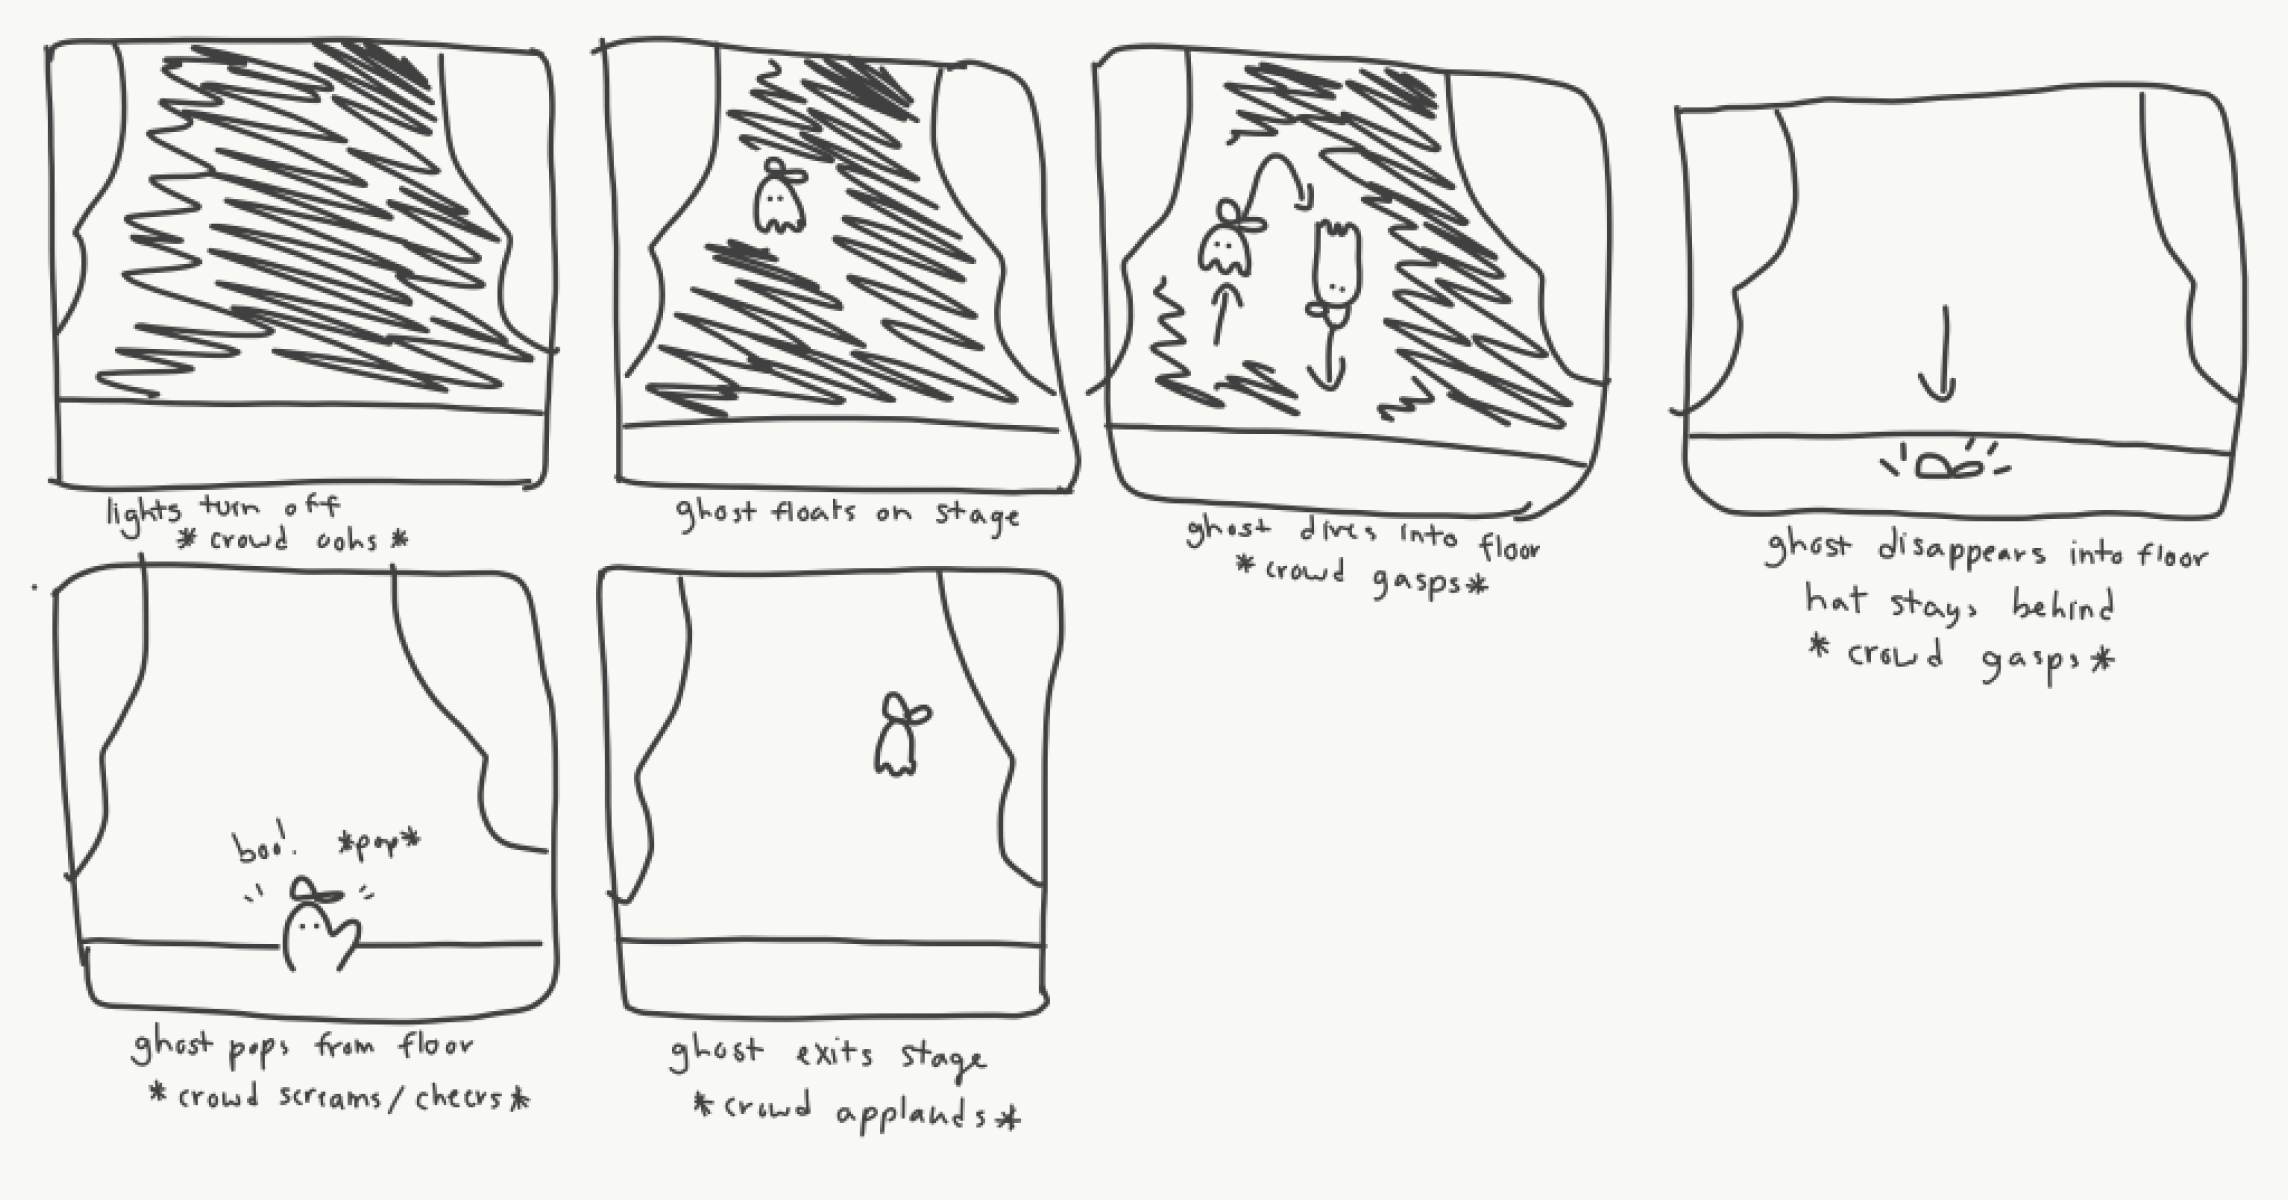 lights turn off
* crowd oohs *
ghost floats on stage
ghost dives into floor
* crowd gasps *
ghost disappears into floor
hat stays behind
* crowd gasps *
boo! *pop*
ghost pops from floor
* crowd screams/cheers *
ghost exits stage
* crowd applauds *